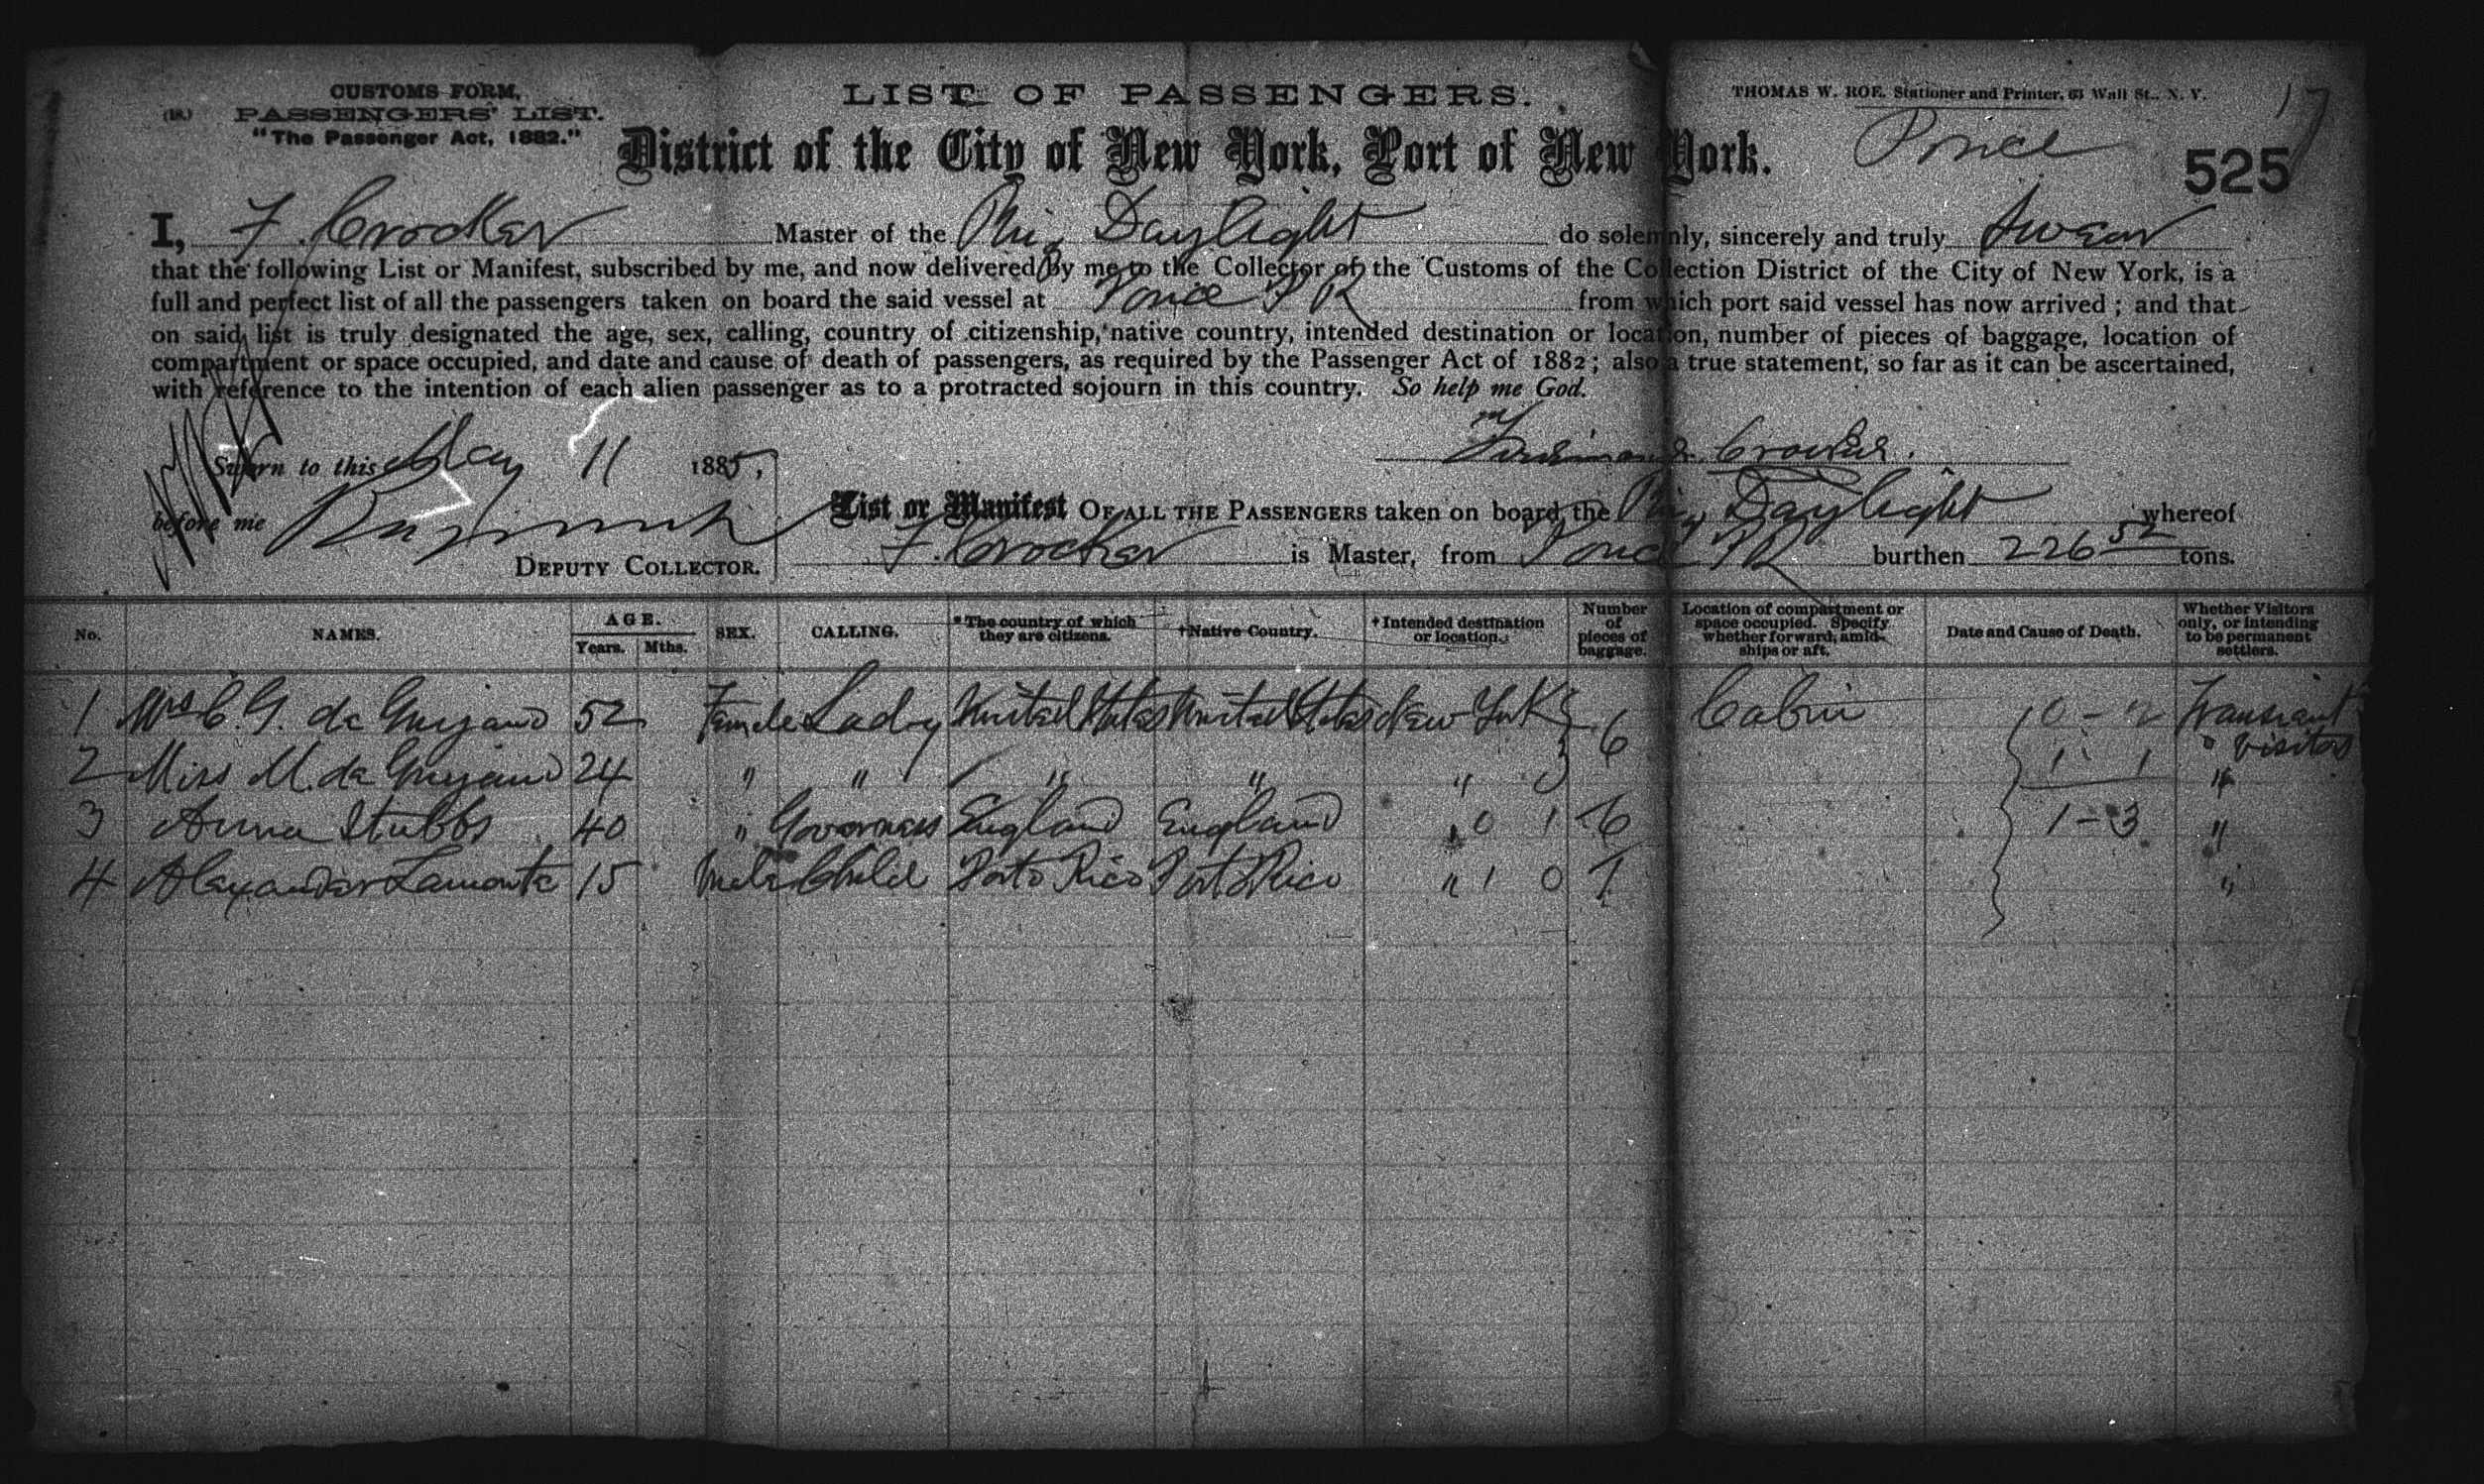 CUSTOMS FORM,
(18.) PASSENGERS' LIST.
"The Passenger Act, 1882."
LIST OF PASSENGERS.
THOMAS W. ROE. Stationer and Printer, 63 Wall St., N. Y.
17
District of the City of New York, Port of New York.
Ponce
525
I, F. Crocker Master of the Brig Daylight do solemnly, sincerely and truly Swear
that the following List or Manifest, subscribed by me, and now delivered by me to the Collector of the Customs of the Collection District of the City of New York, is a
full and perfect list of all the passengers taken on board the said vessel at Ponce P R from which port said vessel has now arrived; and that
on said list is truly designated the age, sex, calling, country of citizenship, native country, intended destination or location, number of pieces of baggage, location of
compartment or space occupied, and date and cause of death of passengers, as required by the Passenger Act of 1882; also a true statement, so far as it can be ascertained,
with reference to the intention of each alien passenger as to a protracted sojourn in this country. So help me God.
Crocker.
Sworn to this May 11 1885,
before me
DEPUTY COLLECTOR.
List or Manifest OF ALL THE PASSENGERS taken on board the Brig Daylight whereof
F. Crocker is Master, from Ponce P R burthen 226 52 tons.
No. NAMES. AGE. Years. Mths. SEX. CALLING. *The country of which they are citizens. †Native Country. †Intended destination or location. Number of pieces of baggage. Location of compartment or space occupied. Specify whether forward, amidships or aft. Date and Cause of Death. Whether Visitors only, or intending to be permanent settlers.
1 Mrs C. G. de Guyand 52 Female Lady United States United States New York 6 Cabin 0 - 2 Transient visitor
2 Miss M. de Guyand 24 " " " " " 0 1 - 1 "
3 Anna Stubbs 40 " Governess England England " 0 1 6 1 - 3 "
4 Alexander Lamonte 15 Male Child Porto Rico Porto Rico " 1 0 1 "